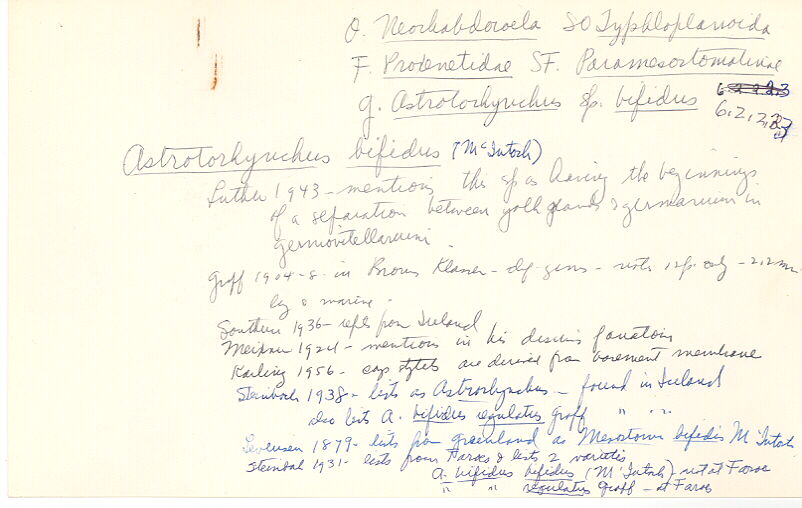 O. Neorhabdocoela SO Typhloplanoida
F. Proxenetidae SF. Paramesostomatinae
g. Astrotorhynchus sp. bifidus 6.2.2.3
6.2.2.
Astrotorhynchus bifidus (McIntosh)
Luther 1943 - mentions this sp as having the beginnings
of a separation between yolk glands & germarium in
germovitellarium.
Graff 1904-8 - in Bronns Klassen - def. genus - notes 1 sp. only - 2.2 mm
lg & marine.
Southern 1936 - repts from Iceland
Meixner 1924 - mentions in his discuss of
Karling 1956 - cop stylets are derived from basement membrane
Steinbock 1938 - lists as Astrorhynchus - found in Iceland
also lists A. bifidus regulatus Graff " " "
Levensen 1879 - lists from Greenland as Mesostoma bifidis M'Intosh
Steinbok 1931 - lists from Faroes & lists 2 varieties
A. bifidus bifidus (M'Intosh) not at Faroe
" " regulatus Graff - at Faroe